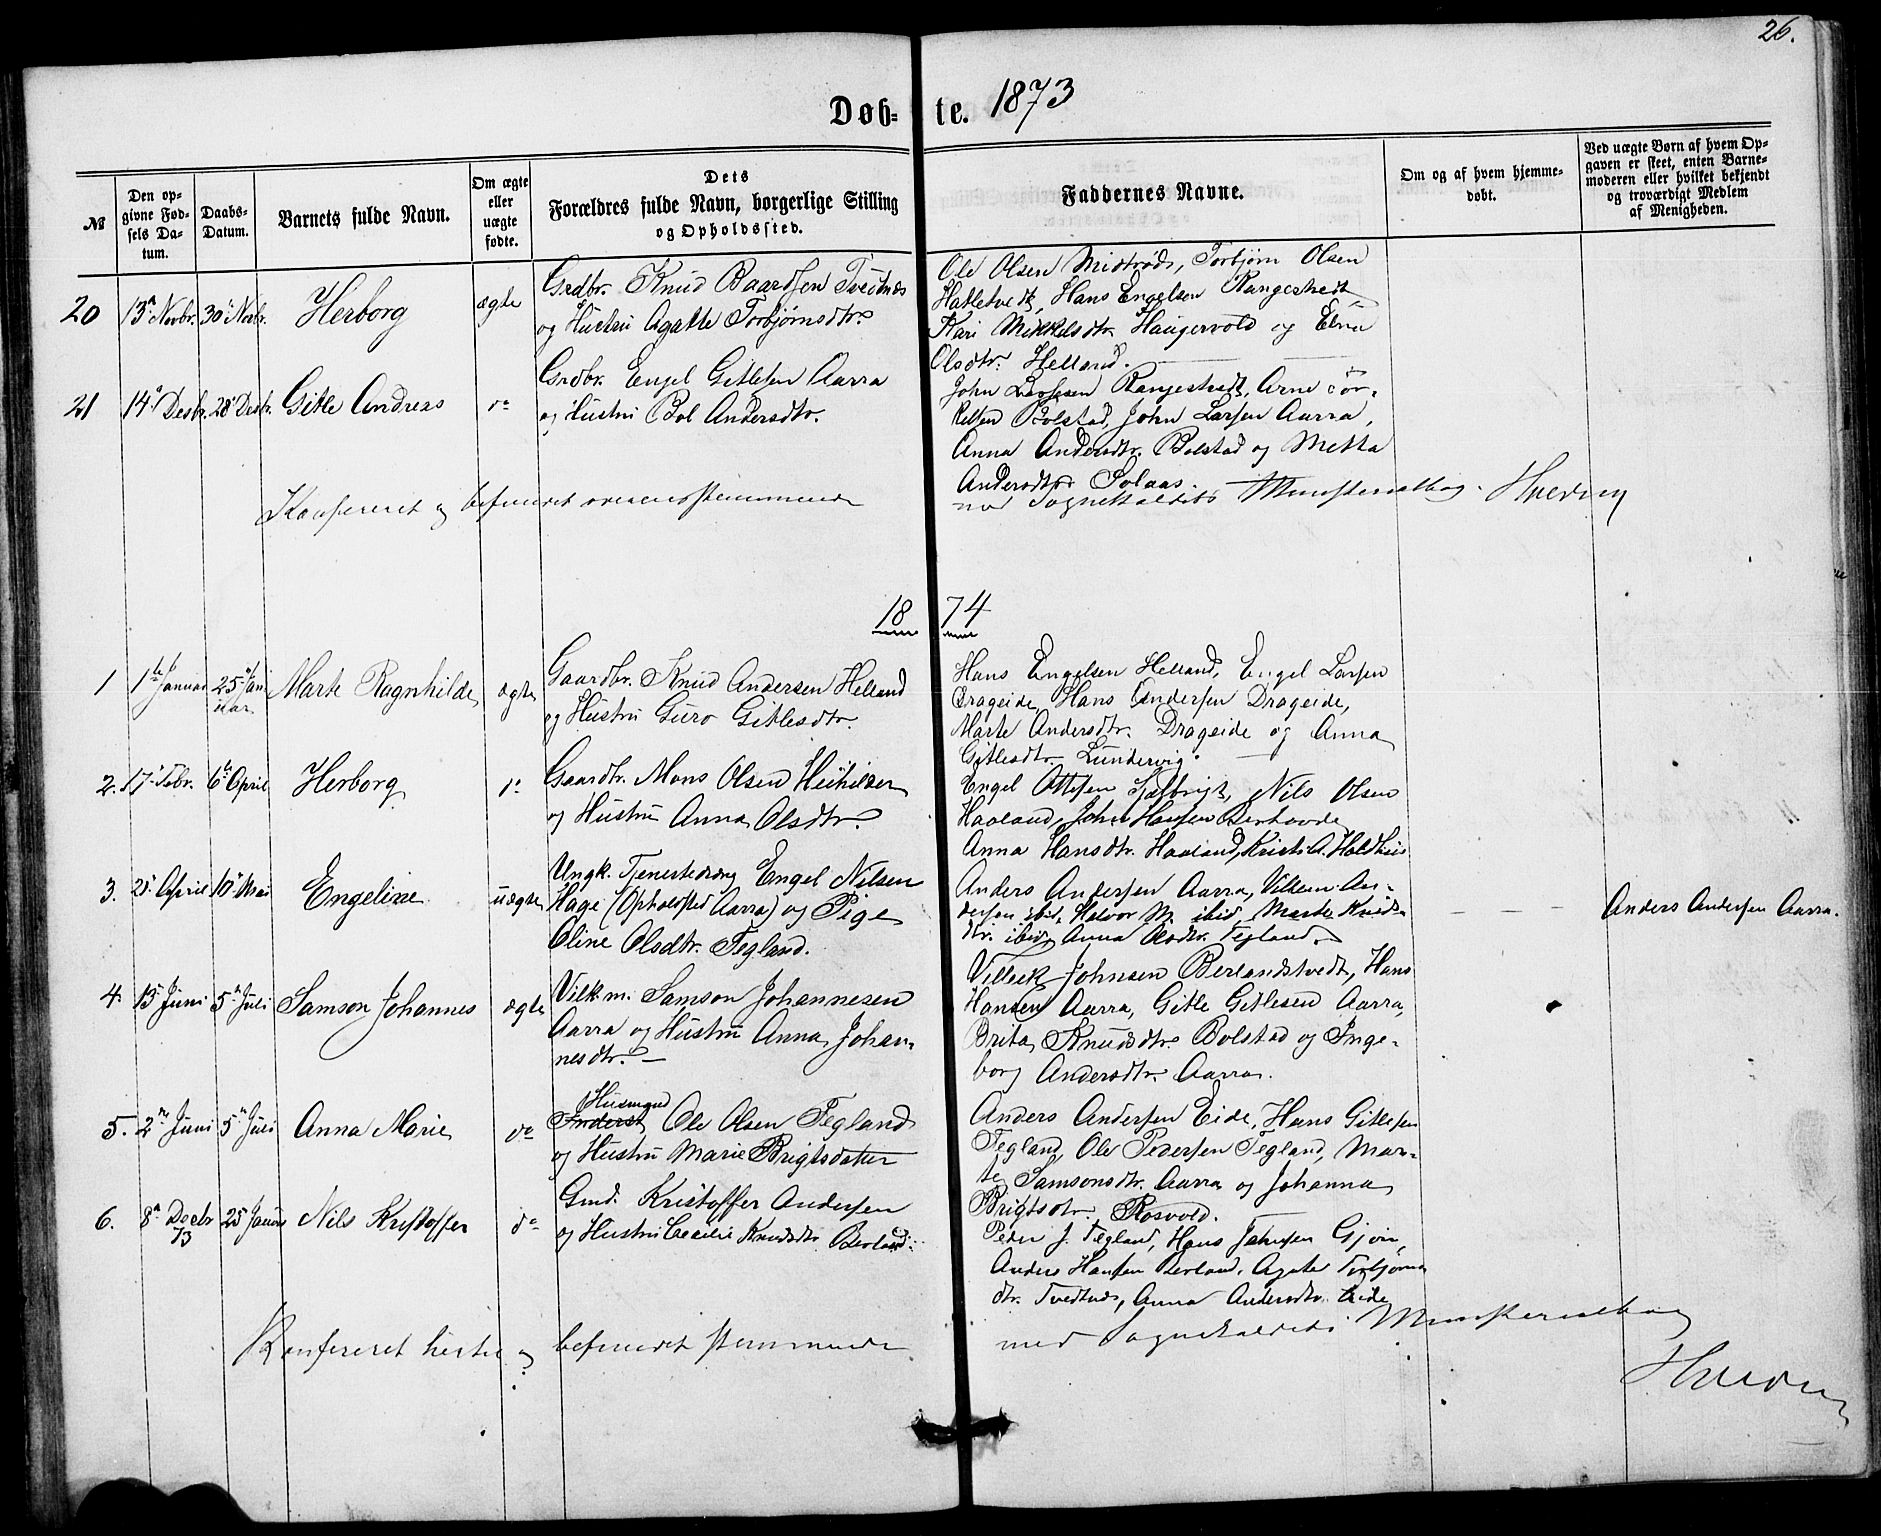 26.
Døb= te. 1873
№
Den op-
givne Fød-
sels Da-
tum.
Daabs-
Datum.
Barnets fulde Navn.
Om ægte
eller
uægte
fødte.
Dets
Forældres fulde Navn, borgerlige Stilling
og Opholdssted.
Faddernes Navne.
Om og af hvem hjemme-
døbt.
Ved uægte Børn af hvem Op-
gaven er skeet, enten Barne-
moderen eller hvilket bekjendt
og troværdigt Medlem
af Menigheden.
20 13de Novbr. 30 Novbr. Herborg ægte
Grdbr. Knud Baardsen Tveitnes
og Hustru Agatte Torbjørnsdtr.
Ole Olsen Midtrød, Torbjørn Olsen
Hatletvedt, Hans Engelsen Rangestvedt
Kari Mikkelsdtr. Haugervold og Elna
Olsdtr. Helland.
21 14de Desbr. 28 Desbr. Gitle Andreas do
Grdbr. Engel Gitlesen Aarra
og Hustru Bol Andersdtr.
John Larssen Rangestvedt, Arne Tor-
kelsen Bolstad, John Larsen Aarra,
Anna Andersdtr. Bolstad og Metta
Andersdtr. Solaas.
Konfereret og befundet overensstemmende med Sognekaldets Ministerialbog.
1874
1 1te Januar 25de Jan
uar. Marte Ragnhilde ægte
Gaardbr. Knud Andersen Helland
og Hustru Guro Gitlesdtr.
Hans Engelsen Helland, Engel Larsen
Drageide, Hans Andersen Drageide,
Marte Andersdtr. Drageide og Anna
Gitlesdtr. Lundervig.
2. 17 Febr. 6te April Herborg do
Gaardbr. Mons Olsen
og Hustru Anna Olsdtr.
Engel Ottesen Nils Olsen
Haaland, John Hansen
Anna Hansdtr. Haaland, Kristi A. Holdhus
3. 25 April 10 Mai Engeline uægte
Ungk. Tjenestedreng Engel Nilsen
Hage (Opholdsted Aarra) og Pige
Oline Olsdtr. Tegland.
Anders Andersen Aarra, Villum An-
dersen ibid, Halvor M. ibid, Marte Knuds-
dtr. ibid, Anna Olsdtr. Tegland.
– – – Anders Andersen Aarra.
4. 13 Juni 5te Juli Samson Johannes ægte
Vilk.m. Samson Johannesen
Aarra og Hustru Anna Johan-
nesdtr. –
Villiek Johnsen Berlandstvedt, Hans
Hansen Aarra, Gitle Gitlesen Aarra,
Brita Knudsdtr. Bolstad og Inge-
borg Andersdtr. Aarra.
5. 2den Juni 5te Juli Anna Marie do
Husmand
Inderst Ole Olsen Tegland
og Hustru Marie Brigtsdatter
Anders Andersen Eide, Hans Gitlesen
Tegland, Ole Pedersen Tegland, Mar-
te Samsonsdtr. Aarra og Johanna
Brigtsdtr. Rosvold.
6. 8de Decbr
73 25 Januar Nils Kristoffer do
Gmd. Kristoffer Andersen
og Hustru Cecilie Knudsdtr Berland.
Peder J. Tegland, Hans Johnsen Gjøn,
Anders Hansen Berland, Agate Torbjørns
dtr. Tvedtnes, Anna Andersdtr. Eide
Konfereret hertil og befundet stemmende med Sognekaldets Ministerialbog